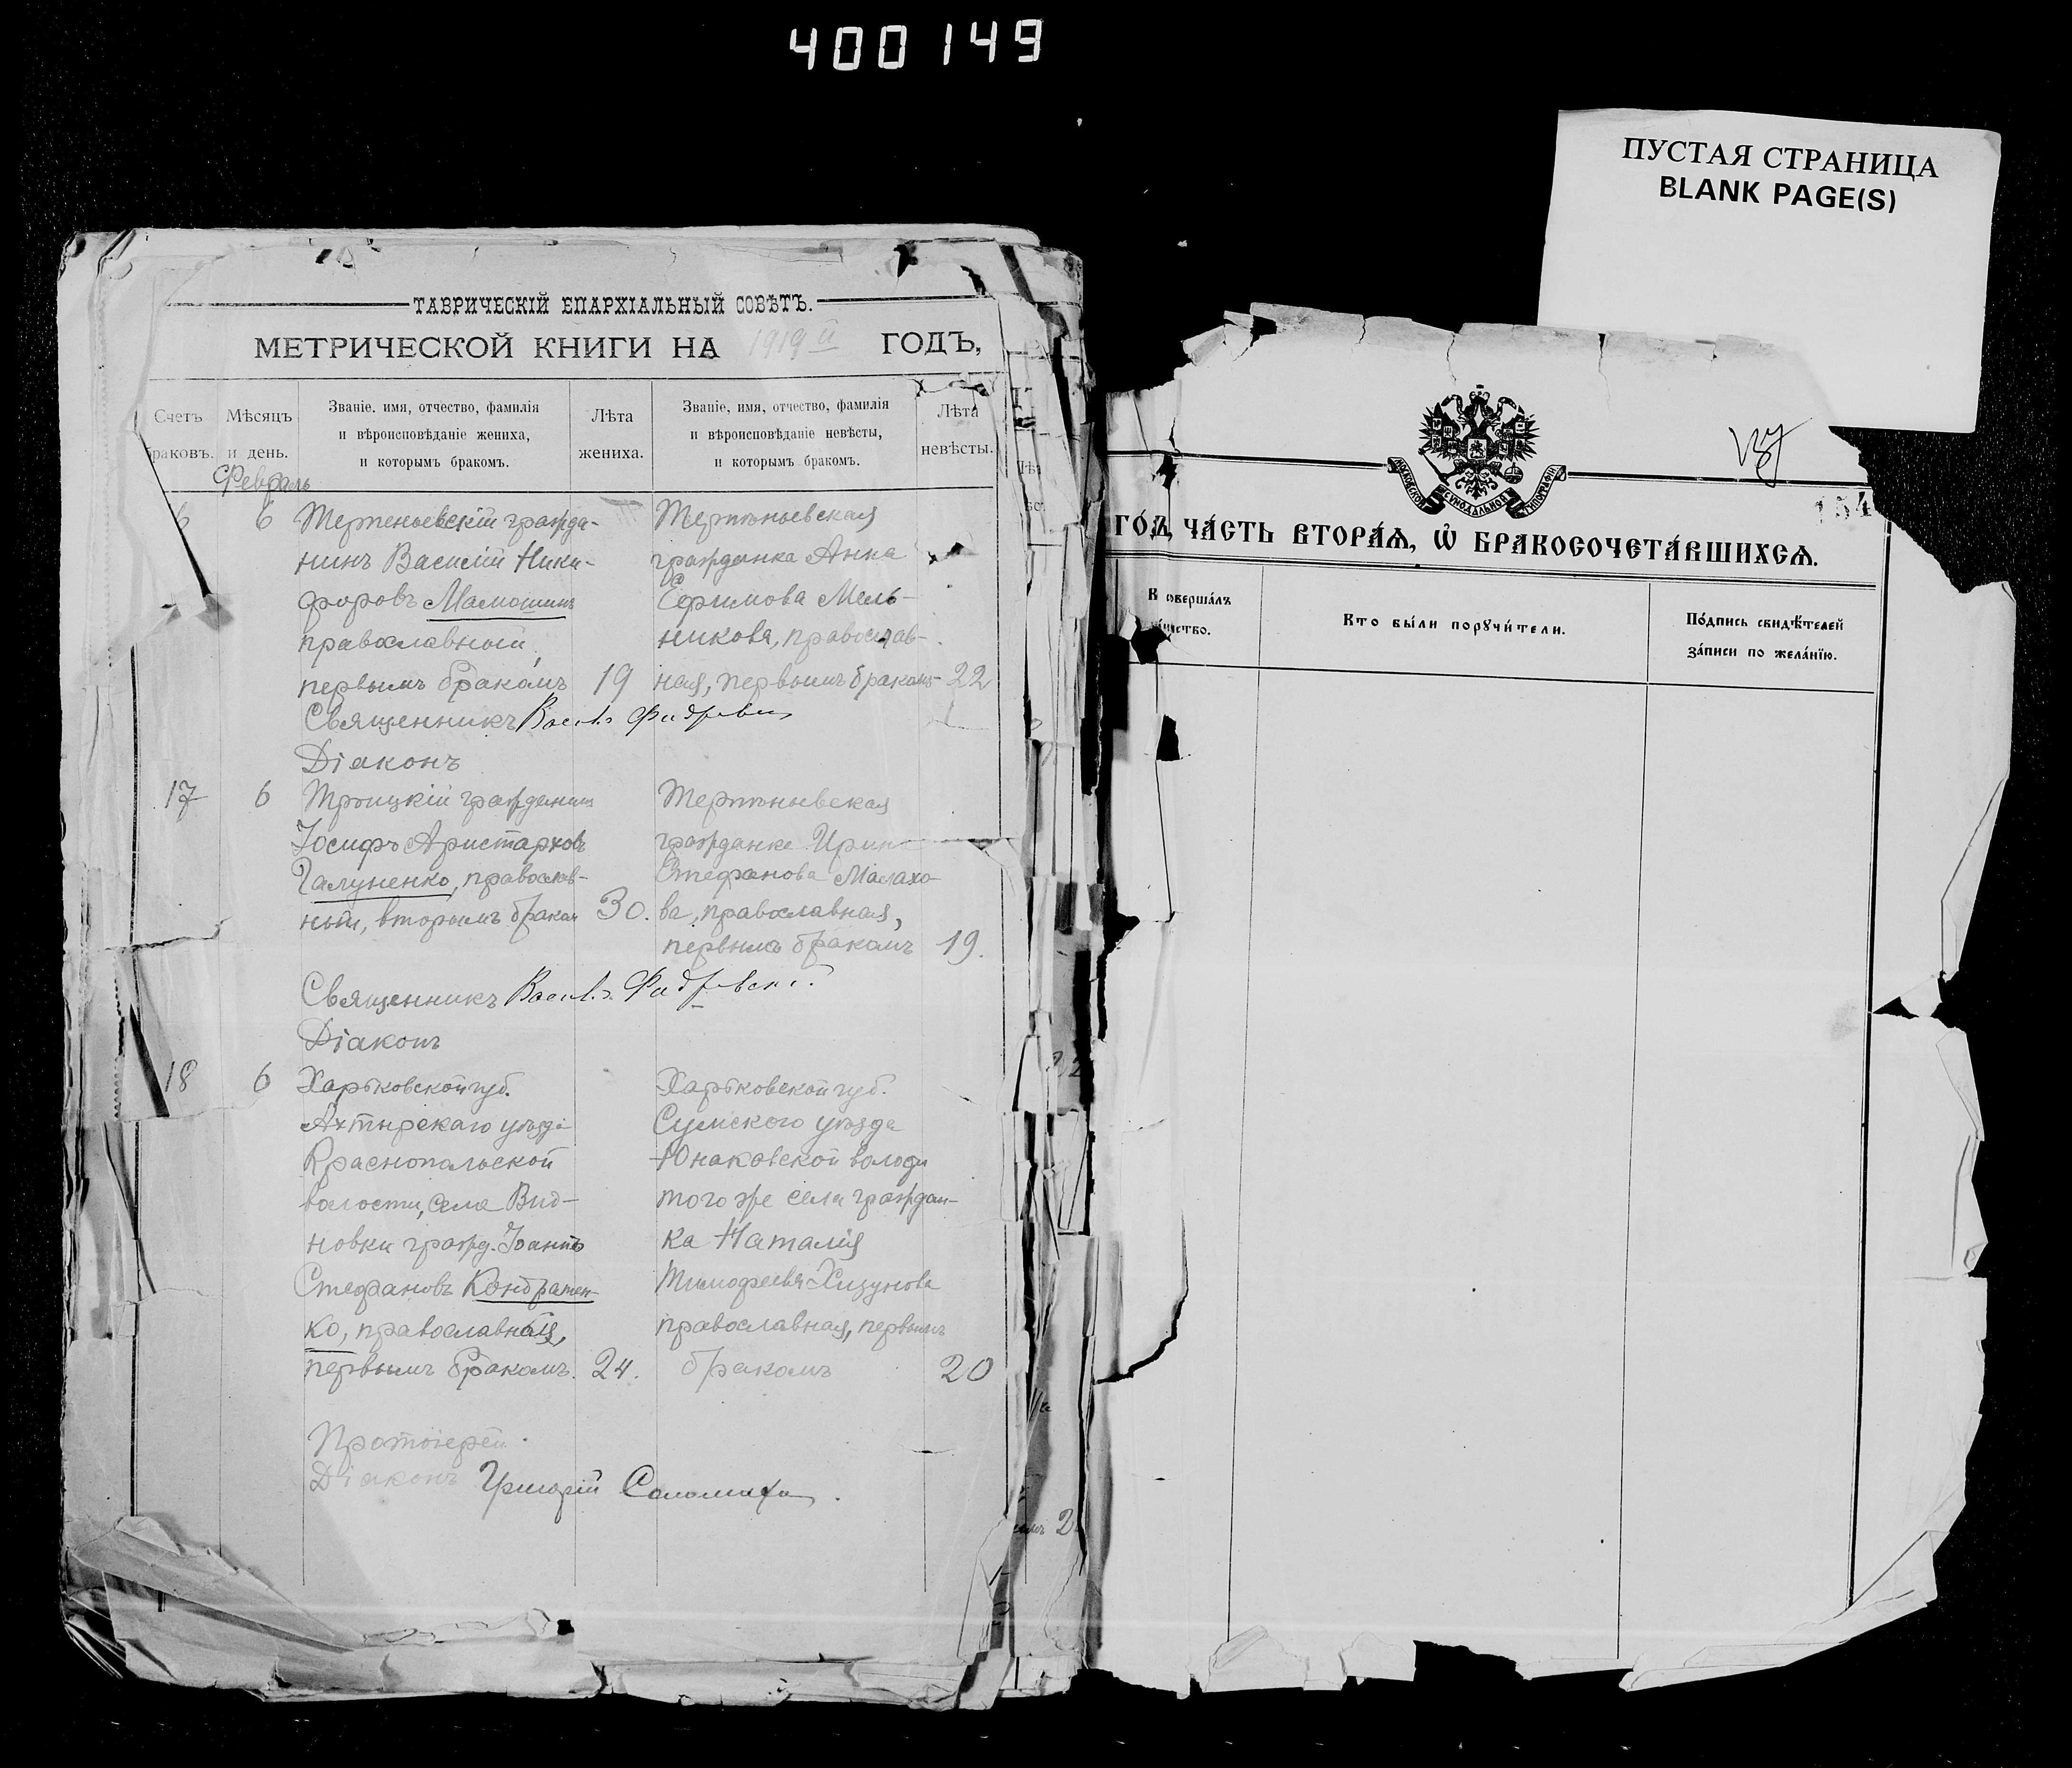 400149
ПУСТАЯ СТРАНИЦА
BLANK PAGE(S)
ТАВРИЧЕСКІЙ ЕПАРХІАЛЬНЫЙ СОВѢТЪ.
МЕТРИЧЕСКОЙ КНИГИ НА 1919й ГОДЪ,
Счетъ браковъ.
Мѣсяцъ и день.
Званіе. имя, отчество, фамилія
и вѣроисповѣданіе жениха,
и которымъ бракомъ.
Лѣта
жениха.
Званіе, имя, отчество, фамилія
и вѣроисповѣданіе невѣсты,
и которымъ бракомъ.
Лѣта
невѣсты.
Февраль
6 6
Терпеньевскій гражда-
нинъ Василій Ники-
форовъ Мамошинъ
православный,
первымъ бракомъ 19
Терпѣньевская
гражданка Анна
Ефимова Мель-
никова, православ-
ная, первымъ бракомъ 22
Священникъ
Діаконъ
17 6
Троицкій гражданинъ
Іосифъ Аристарховъ
Галуненко, православ-
ный, вторымъ бракомъ 30.
Терпѣньевская
гражданка Ирина
Стефанова Малахо-
ва, православная,
первымъ бракомъ 19.
Священникъ
Діаконъ
18 6
Харьковской губ.
Ахтырскаго уѣзда
Краснопольской
волости, села Вид-
новки гражд. Іоаннъ
Стефановъ Кондратен-
ко, православный,
первымъ бракомъ. 24.
Харьковской губ.
Сумского уѣзда
Юнаковской волости
того же села граждан-
ка Наталія
Тимофеева Хизунова
православная, первымъ
бракомъ 20
Протоіерей
Діаконъ Григорій Соломаха.
154
МОСКОВСКОЙ СѴНОДАЛЬНОЙ ТИПОГРАФІИ
ГО́ДЪ, ЧА́СТЬ ВТОРА́Ѧ, Ѽ БРАКОСОЧЕТА́ВШИХСѦ.
Кто бы́ли порꙋчи́тели.
По́дпись свидѣ́телей
за́писи по жела́нїю.